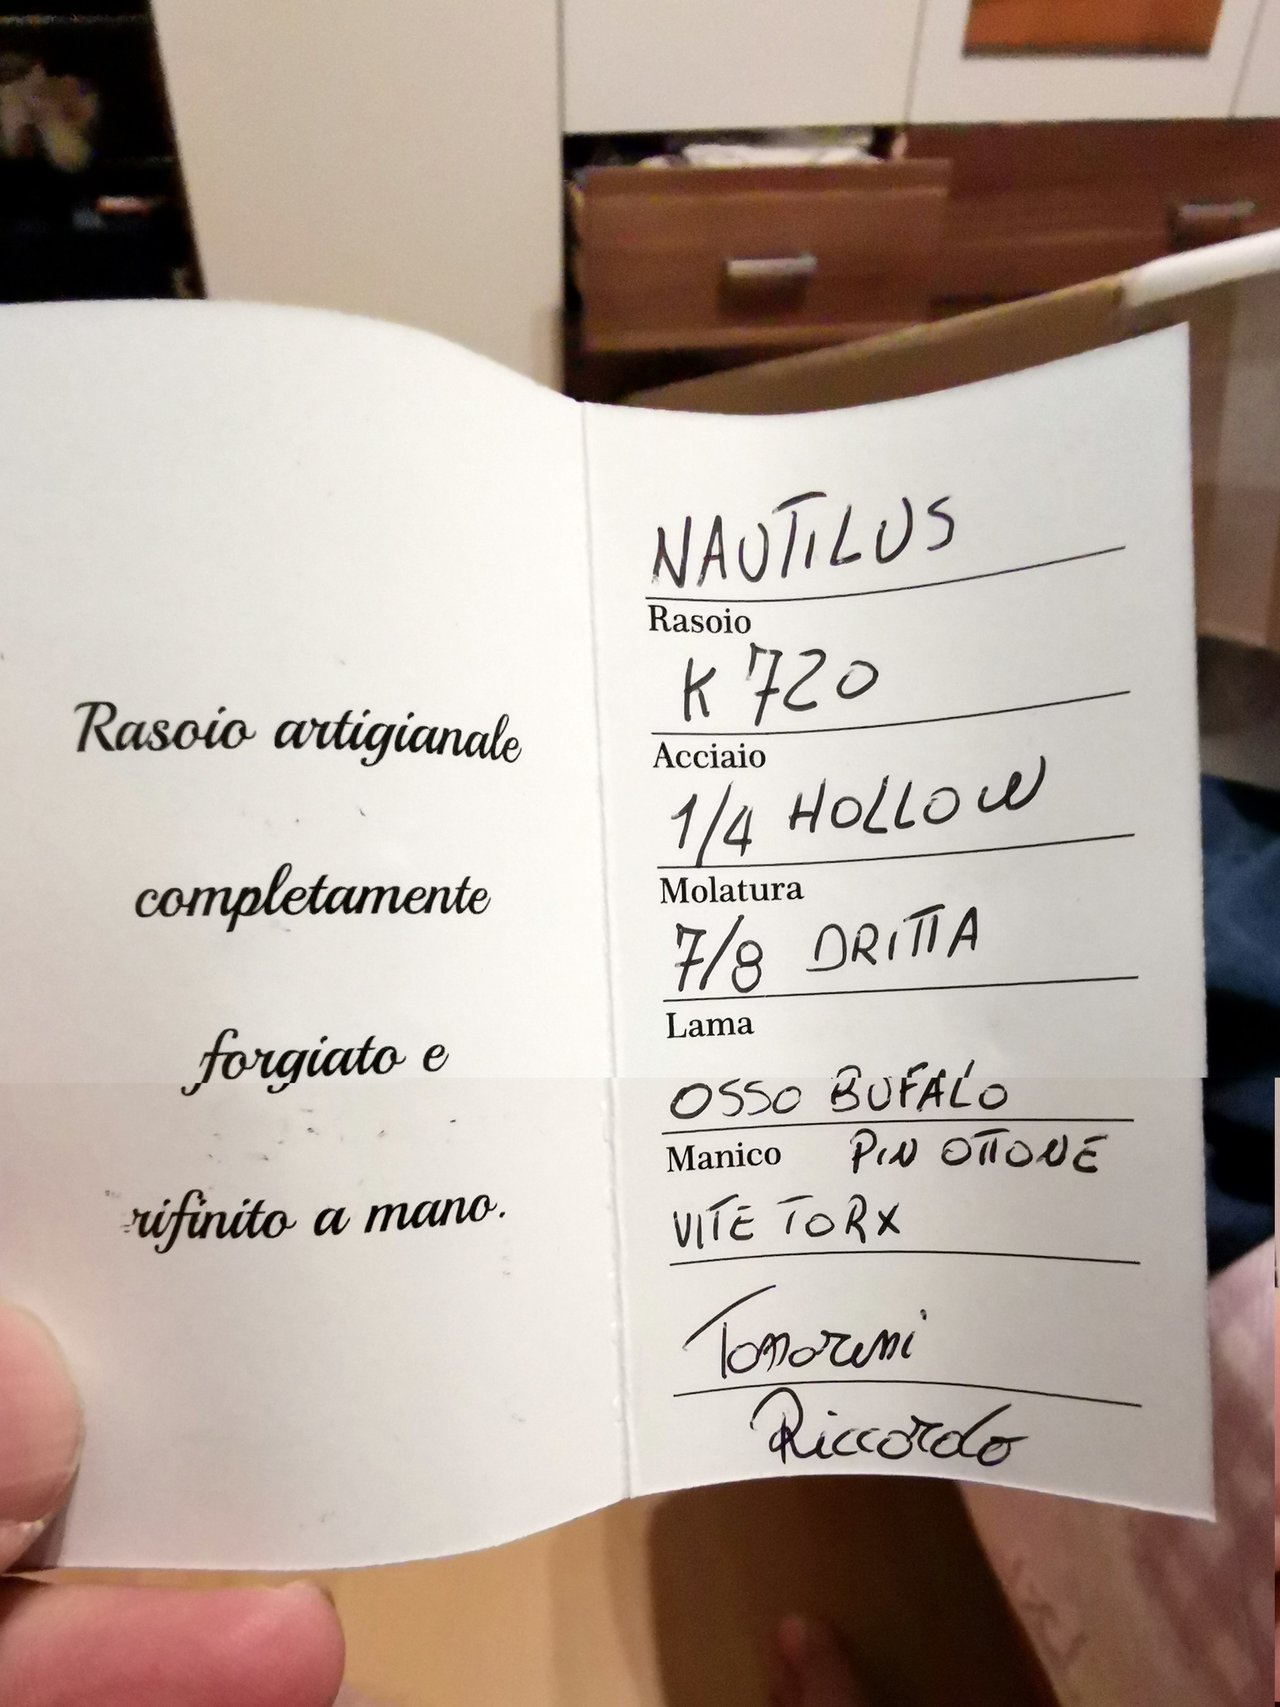 Rasoio artigianale
completamente
forgiato e
rifinito a mano.
NAUTILUS
Rasoio
K 720
Acciaio
1/4 HOLLOW
Molatura
7/8 DRITTA
Lama
OSSO BUFALO
Manico PIN OTTONE
VITE TORX
Riccardo